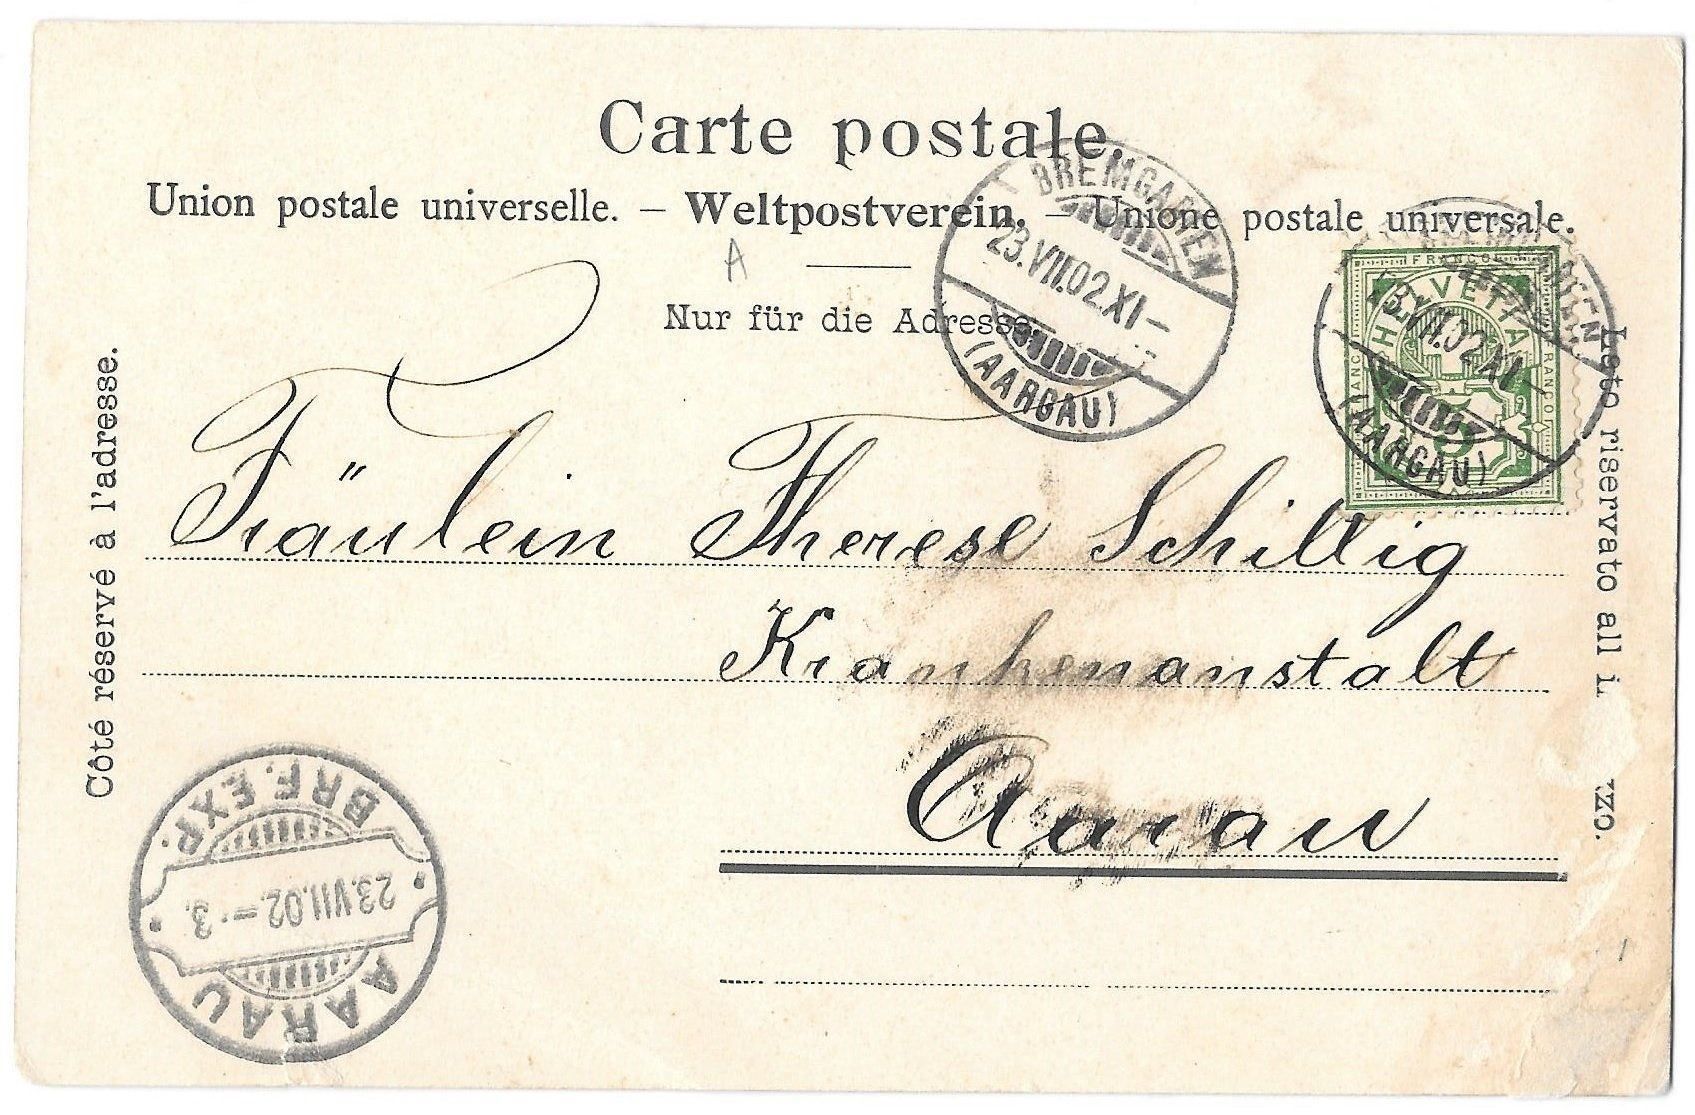 Carte postale.
Union postale universelle. – Weltpostverein. – Unione postale universale.
A
Nur für die Adresse
BREMGARTEN
23.VII.02.XI–
(AARGAU)
BREMGARTEN
23.VII.02.XI–
(AARGAU)
FRANCO
FRANCO
FRANCO
HELVETIA
5
Côté réservé à l'adresse.
Lato riservato all i
zzo.
Fräulein Therese Schillig
Krankenanstalt
Aarau
AARAU
23.VII.02.–3.
BRF. EXP.